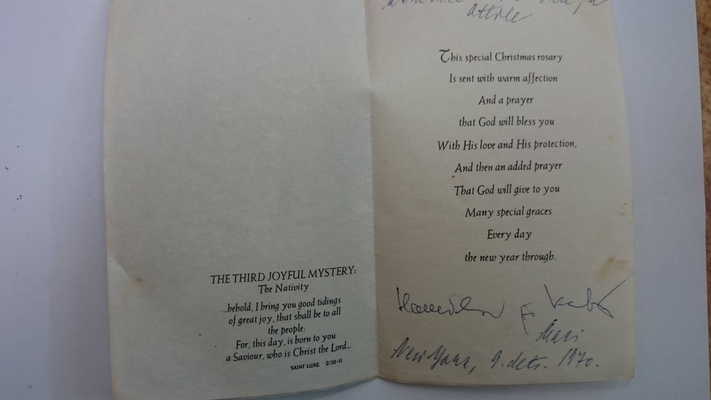 THE THIRD JOYFUL MYSTERY:
The Nativity
...behold, I bring you good tidings
of great joy, that shall be to all
the people:
For, this day, is born to you
a Saviour, who is Christ the Lord...
SAINT LUKE 2:10-11
This special Christmas rosary
Is sent with warm affection
And a prayer
that God will bless you
With His love and His protection,
And then an added prayer
That God will give to you
Many special graces
Every day
the new year through.
9. dets. 1970.